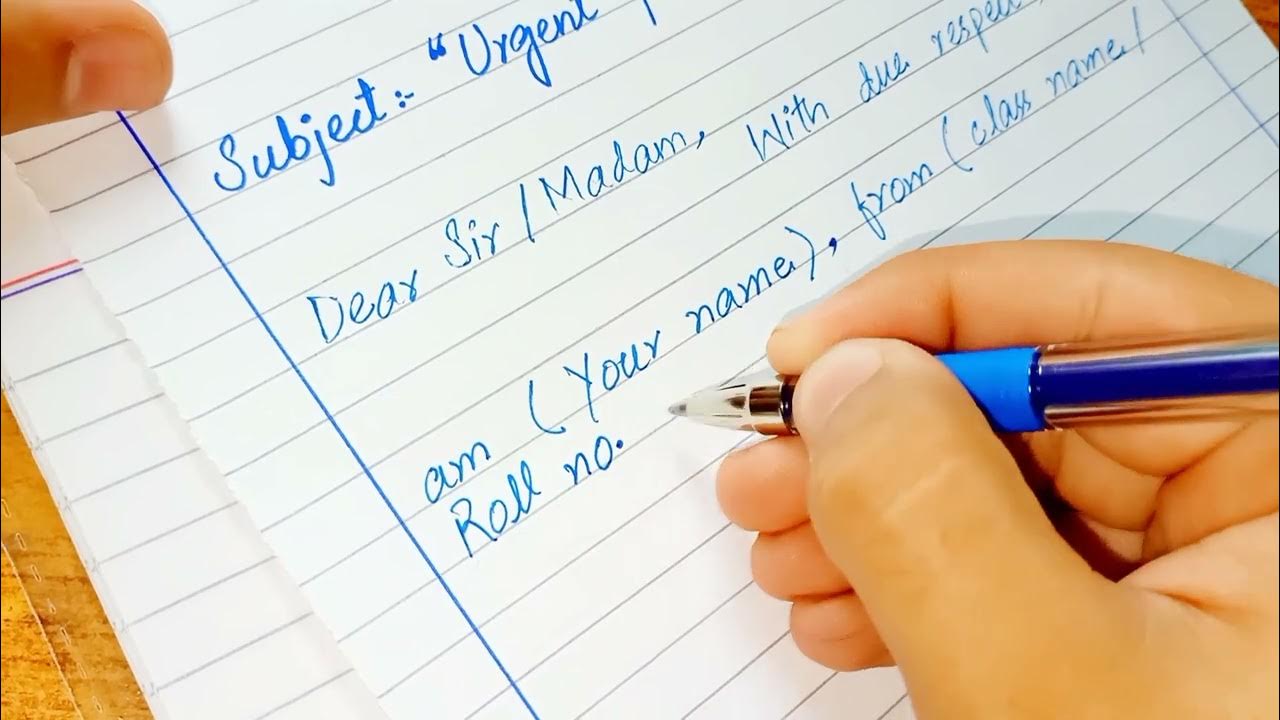 Subject:- "Urgent
Dear Sir/Madam, With due respect,
am (Your name), from (class name/
Roll no.